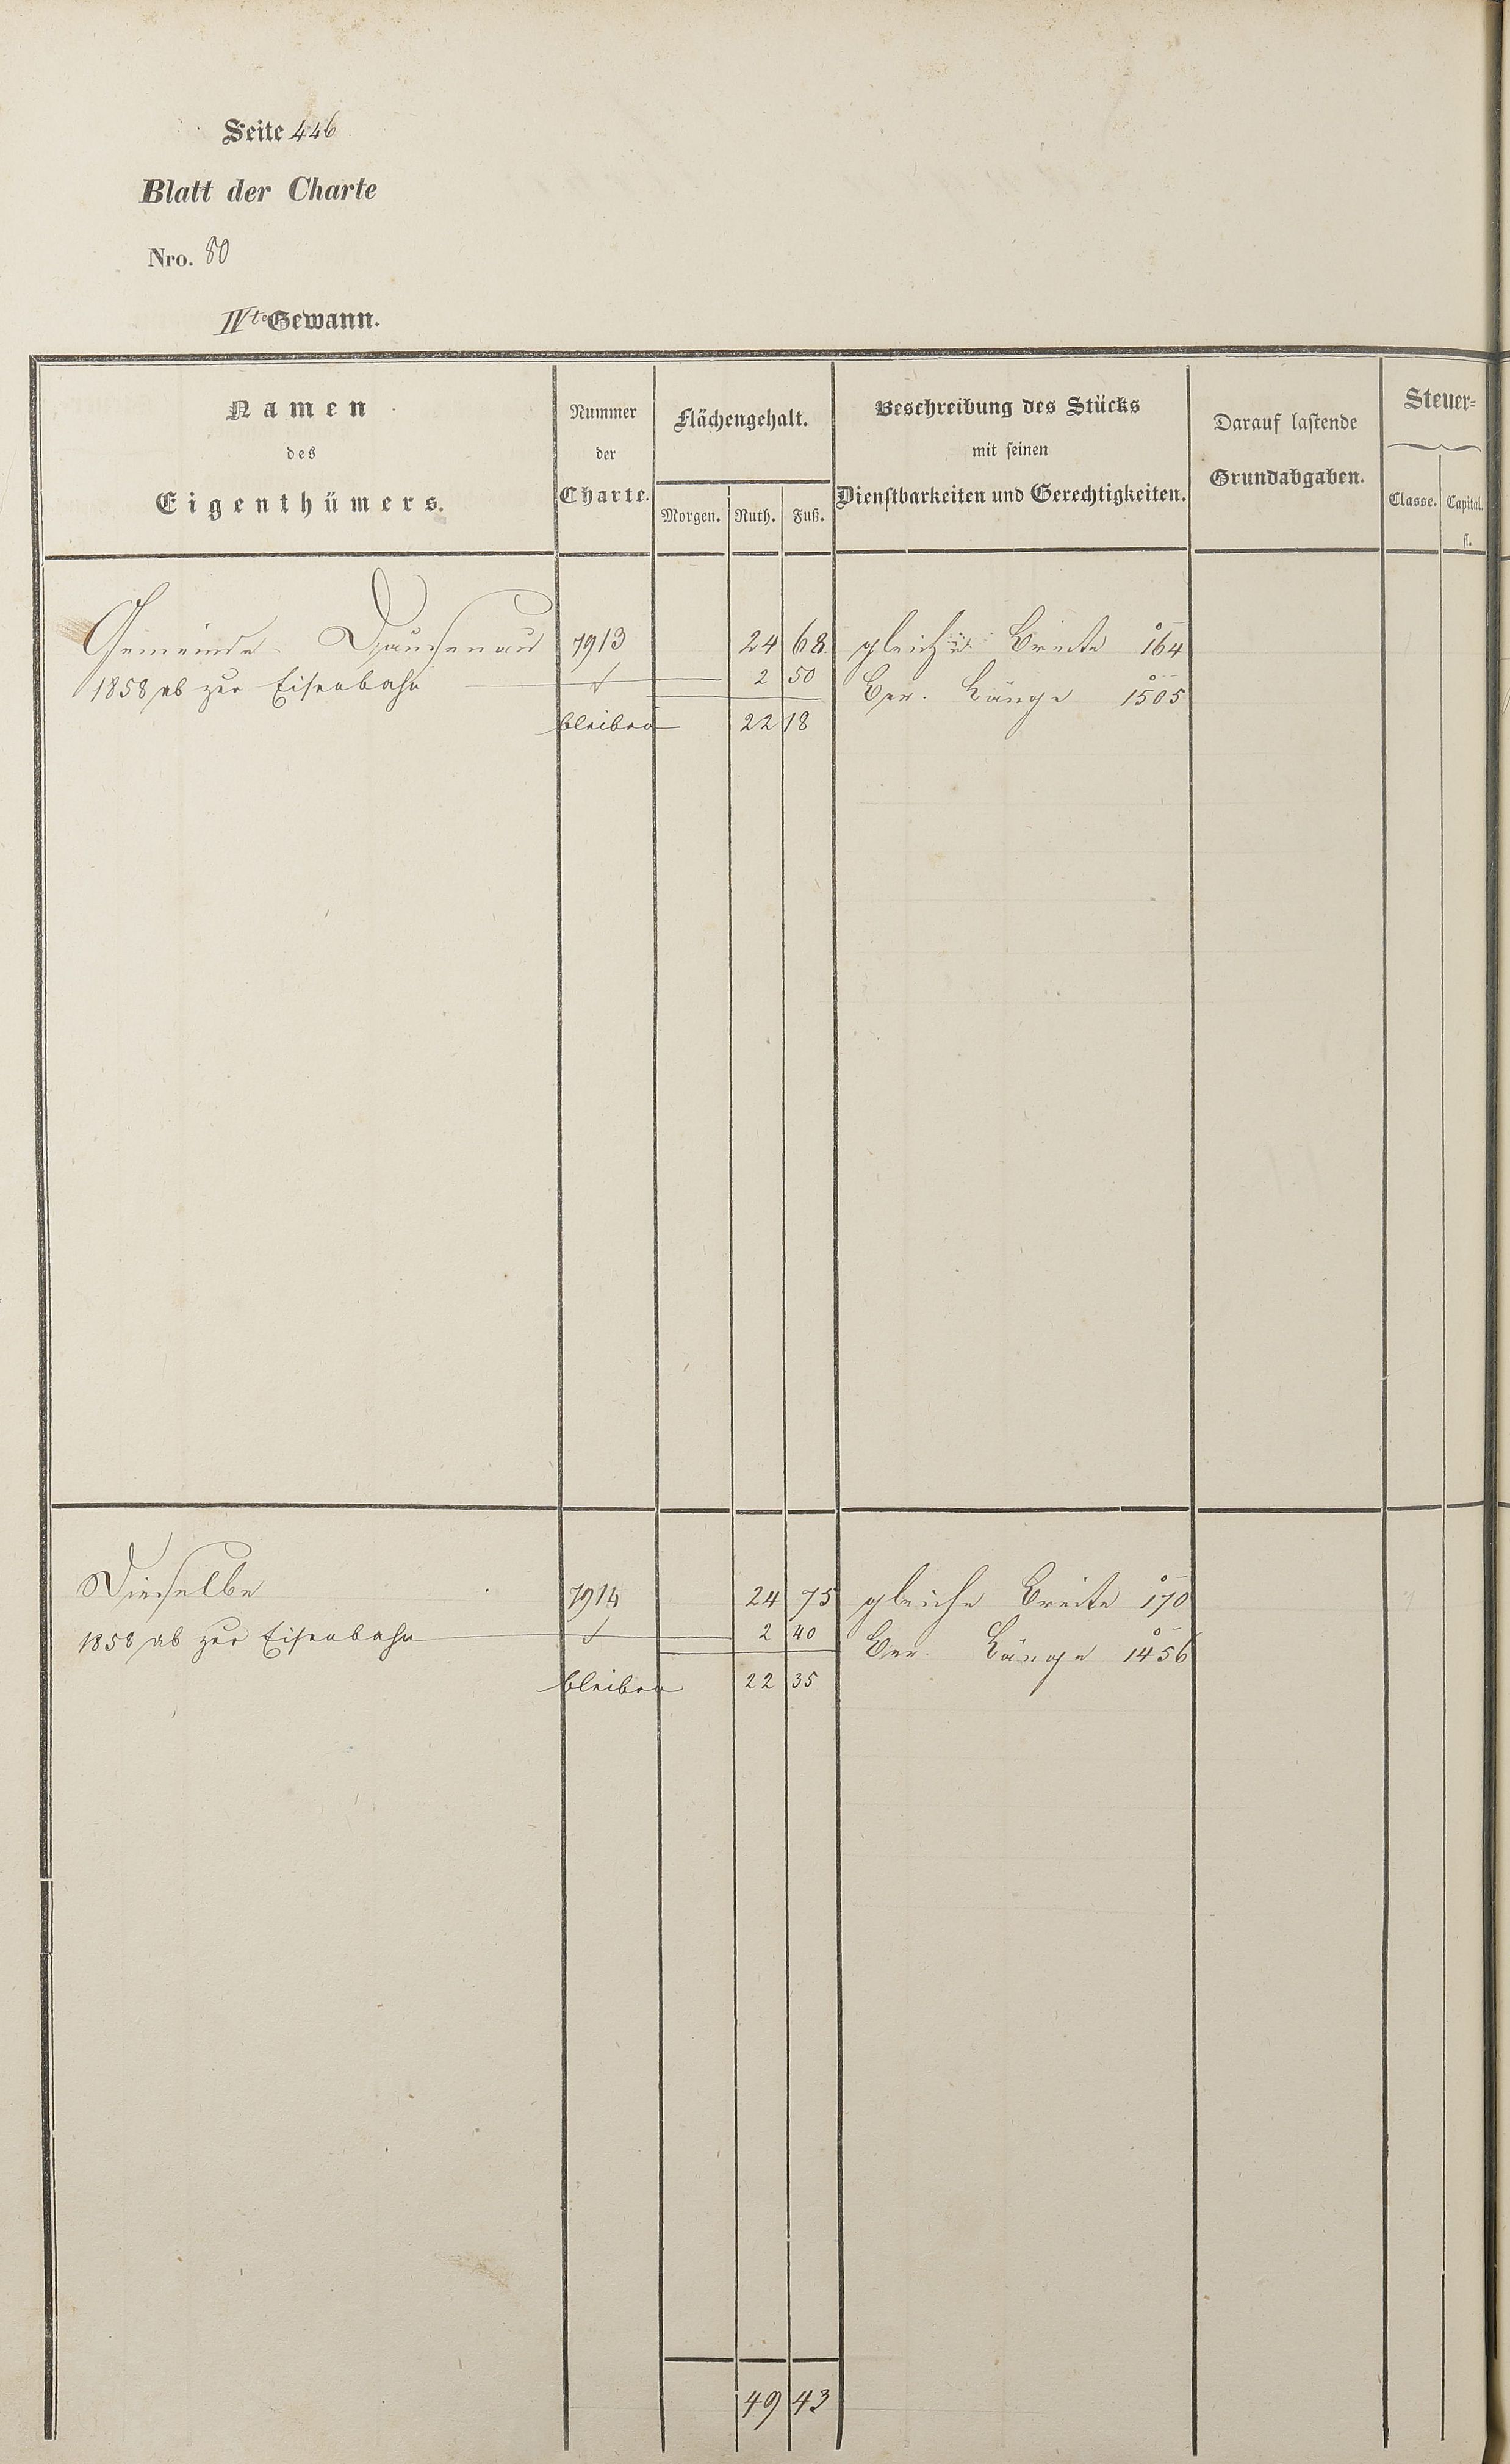 Seite 446
Blatt der Charte
Nro. 80
IVte Gewann.
Namen des Eigenthümers.
Nummer der Charte.
Flächengehalt.
Morgen. Ruth. Fuß.
Beschreibung des Stücks mit seinen Dienstbarkeiten und Gerechtigkeiten.
Darauf lastende Grundabgaben.
Steuer-
Classe. Capital.
fl.
Gemeinde Dausenau 7913 24 68 gleiche Breite 164
1858 ab zur Eisenbahn 2 50 Ber. Länge 1505
bleiben 22 18
Dieselbe 7914 24 75 gleiche Breite 170
1858 ab zur Eisenbahn 2 40 Ber. Länge 1456
bleiben 22 35
49 43